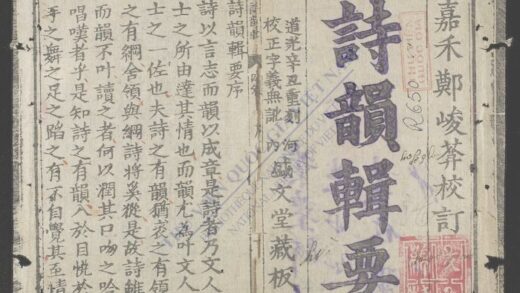 嘉禾鄭峻莽校訂
詩韻輯要
道光辛丑重刻 河
校正字義無訛 內
盛文堂藏板
R650
詩韻輯要序
詩以言志而韻以成章是詩者乃文人
士之所由達其情也而韻尤為叶文人
士之一佐也夫詩之有韻猶衣之有領
之有綱舍領與綱詩將奚從是故詩雖
而韻不叶讀之者何以潤其口吻之哈
唱嘆者乎是知詩之有韻入於目悅於
手之舞之足之蹈之有不自覺其至情